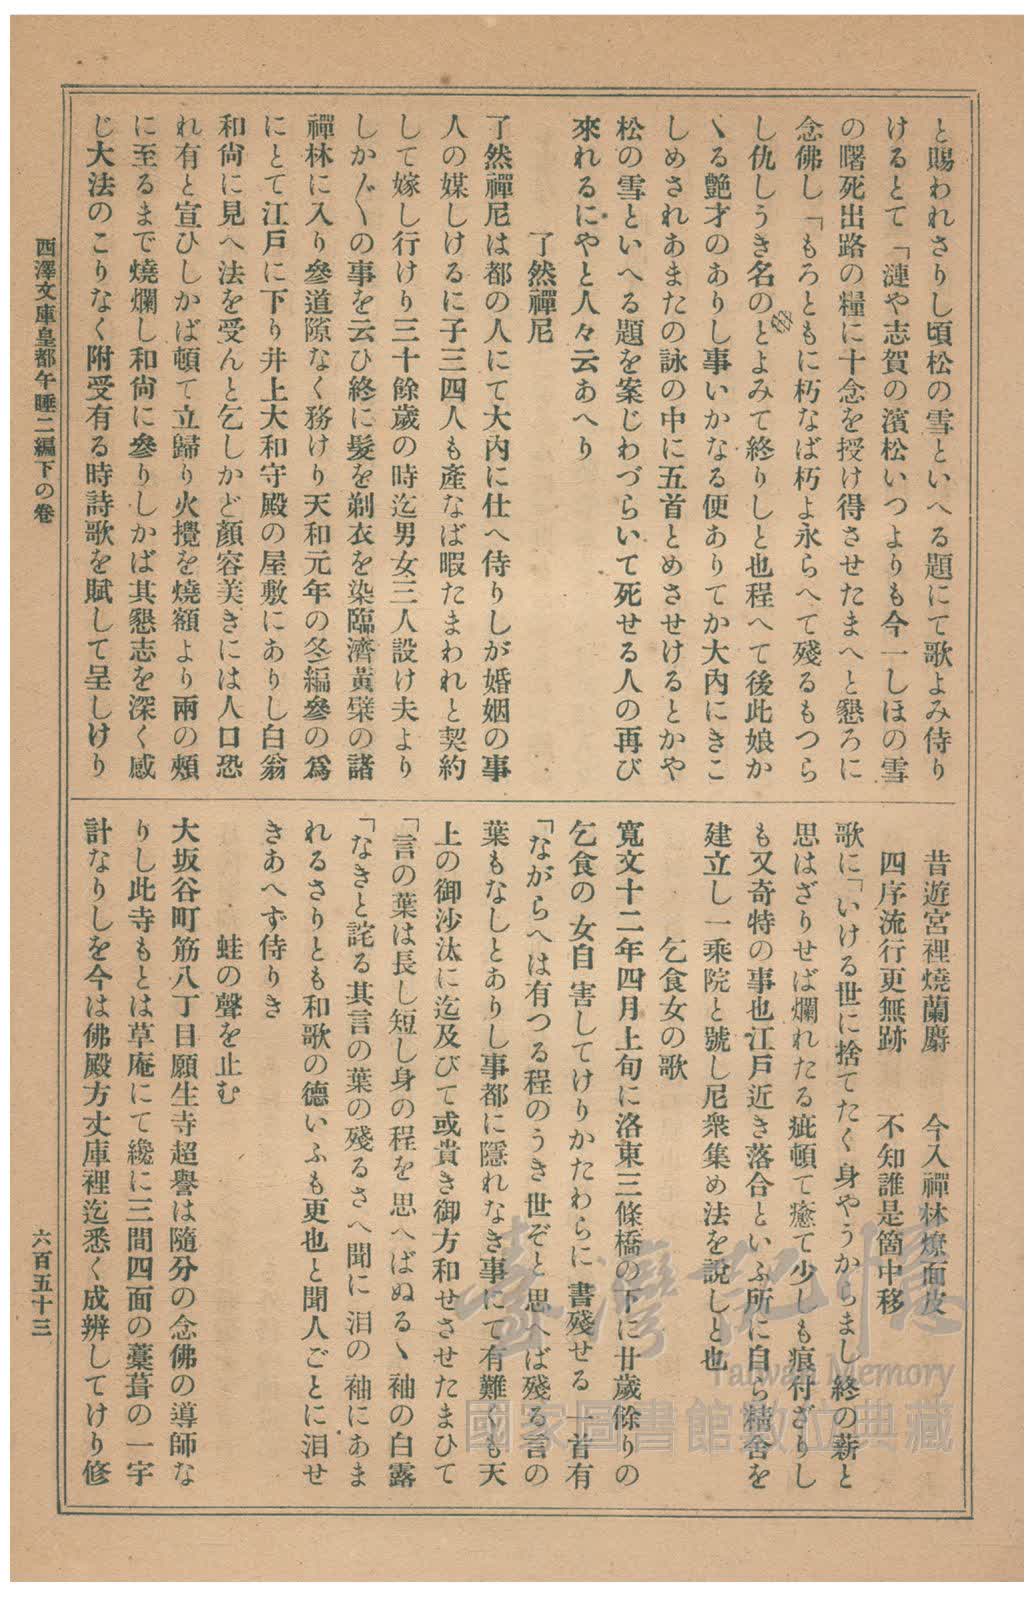 と賜われさりし頃松の雪といへる題にて歌よみ侍り
けるとて「漣や志賀の濱松いつよりも今一しほの雪
の曙死出路の糧に十念を授け得させたまへと懇ろに
念佛し「もろともに朽なば朽よ永らへて殘るもつら
し仇しうき名のとよみて終りしと也程へて後此娘か
ゝる艶才のありし事いかなる便ありてか大內にきこ
しめされあまたの詠の中に五首とめさせけるとかや
松の雪といへる題を案じわづらいて死せる人の再び
來れるにやと人々云あへり
了然禪尼
了然禪尼は都の人にて大內に仕へ侍りしが婚姻の事
人の媒しけるに子三四人も產なば暇たまわれと契約
して嫁し行けり三十餘歲の時迄男女三人設け夫より
しか〴〵の事を云ひ終に髮を剃衣を染臨濟黃檗の諸
禪林に入り參道隙なく務けり天和元年の冬編參の爲
にとて江戶に下り井上大和守殿の屋敷にありし白翁
和尙に見へ法を受んと乞しかど顏容美きには人口恐
れ有と宣ひしかば頓て立歸り火攪を燒額より兩の頰
に至るまで燒爛し和尙に參りしかば其懇志を深く感
じ大法のこりなく附受有る時詩歌を賦して呈しけり
昔遊宮裡燒蘭麝　今入禪林燎面皮
四序流行更無跡　不知誰是箇中移
歌に「いける世に捨てたく身やうからまし終の薪と
思はざりせば爛れたる疵頓て癒て少しも痕付ざりし
も又奇特の事也江戶近き落合といふ所に自ら精舍を
建立し一乘院と號し尼衆集め法を說しと也
乞食女の歌
寬文十二年四月上旬に洛東三條橋の下に廿歲餘りの
乞食の女自害してけりかたわらに書殘せる一首有
「ながらへは有つる程のうき世ぞと思へば殘る言の
葉もなしとありし事都に隱れなき事にて有難くも天
上の御沙汰に迄及びて或貴き御方和せさせたまひて
「言の葉は長し短し身の程を思へばぬるゝ袖の白露
「なきと詫る其言の葉の殘るさへ聞に泪の袖にあま
れるさりとも和歌の德いふも更也と聞人ごとに泪せ
きあへず侍りき
蛙の聲を止む
大坂谷町筋八丁目願生寺超譽は隨分の念佛の導師な
りし此寺もとは草庵にて纔に三間四面の藁葺の一宇
計なりしを今は佛殿方丈庫裡迄悉く成辨してけり修
西澤文庫皇都午睡二編下の卷
六百五十三
臺灣記憶
Taiwan Memory
國家圖書館數位典藏